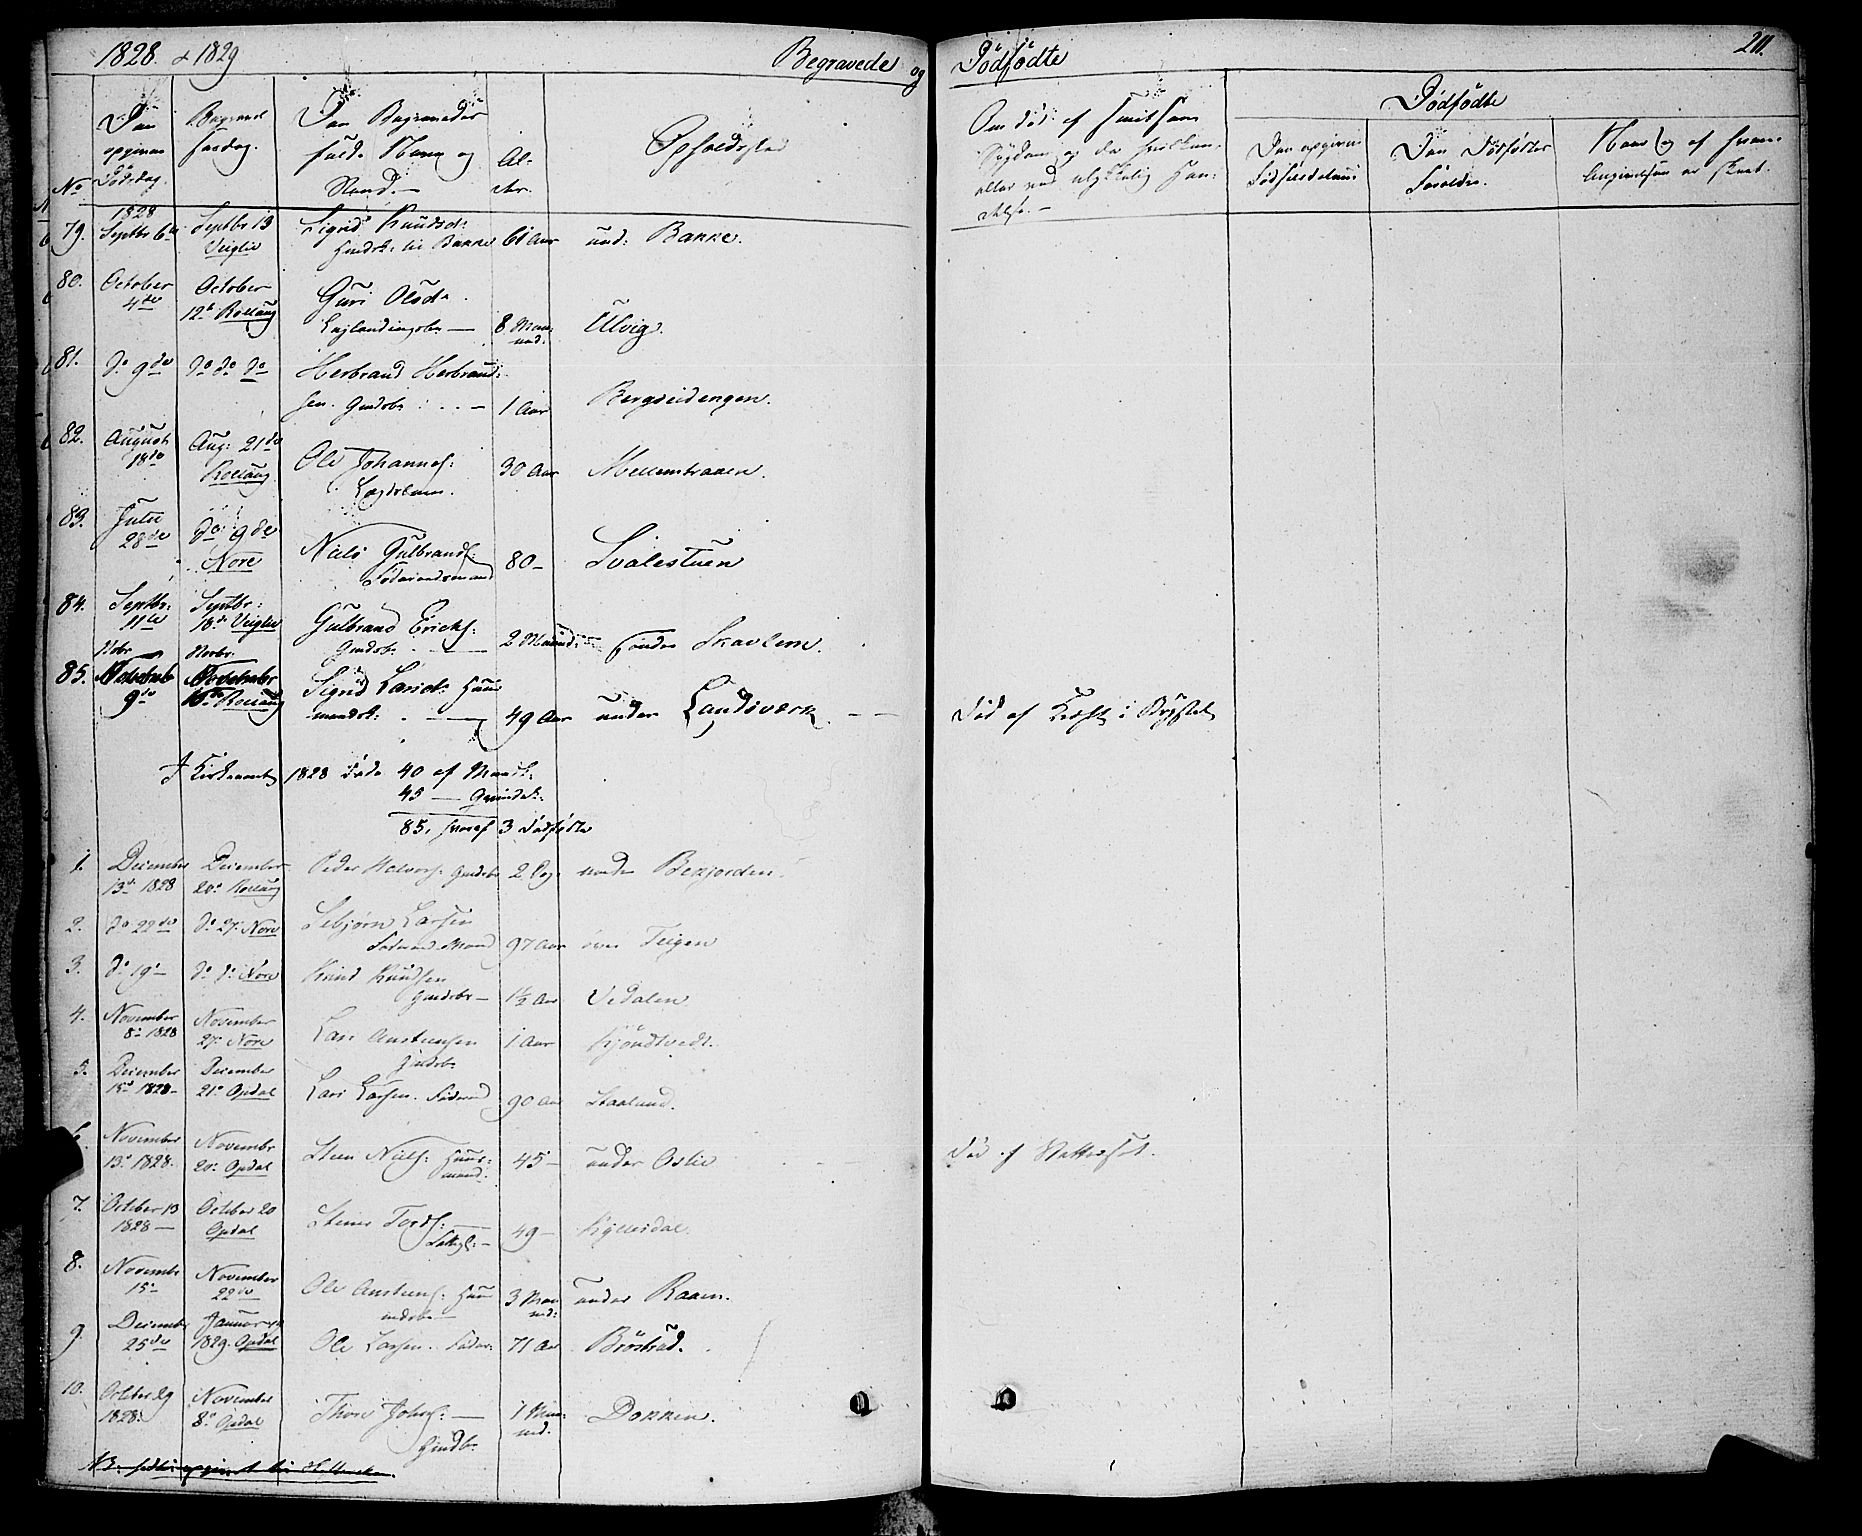 1828 & 1829 Begravede og Dødfødte 211.
No
Den opgivne Dødsdag.
Begravelsesdag.
Den Begravedes fulde Navn og Stand.
Alder.
Opholdssted
Om død af smitsom Sygdom og da hvilken, eller ved ulykkelig Hændelse.
Dødfødte
Den opgivne Fødselsdatum
Den Dødfødtes Forældre.
Naar og af hvem Angivelsen er skeet.
79. 1828 Septbr 6te Septbr 13 Veiglie Sigrid Knudsd: 61 Aar und: Bakke.
80. October 4de October 12te Rollaug Guri Olsd. 8 Maaned: Ulvig.
81. do 9de do do do Herbrand Herbrandsen. Gmdsbn 1 Aar Bergseidengen.
82. August 18de Aug: 21de Rollaug Ole Johannes: Lægdslem. 30 Aar Mellembraaen.
83. Julii 28de do 9de Nore Niels Gulbrands: Föderaadsmand 80 - Svalestuen
84. Septbr: 11te Septbr: 18de Veiglie Gulbrand Erichs: Gmdsb. 2 Maaned: Søndre Skavlem.
85. Nobr 9de Novbr. 16de Rollaug Sigrid Larsd: Huusmandsk: 49 Aar under Landsværk Död af Kræft i Brystet
I Kirkeaaret 1828 döde 40 af Mandk:
45 — Qvindek:
85, hvoraf 3 dödfödte
1. December 13de 1828 December 20de Rollaug Peder Halvors: Gmdsbn 2 Dg under Bekjorden.
2. do 22de do 27. Nore Sebjørn Larsen Föderaadsmand 97 Aar övre Teigen
3. do 19de do do Nore Knud Knudsen Gmdsbn 1½ Aar Vedalen
4. November 8de 1828 November 27. Nore Lars Anstensen Gmdsbn 1 Aar Kjöndtvedt.
5. December 15de 1828 December 21de Opdal Lars Larsen. Föderaad 90 Aar Staalund.
6. November 13de 1828. Novembr 20de Opdal Steen Niels: Huusmand. 45 - under Oslie Död af Vattersot.
7. October 13 1828 October 20 Opdal Steiner Tords: 49 - Kyllesdal.
8. Novembr 15de November 22de Ole Anstens: 3 Maaned: under Raaen.
9. Decembr 25de Januar 1829. Opdal Ole Larsen. Föder: 71 Aar Bröstrud.
10. October 29 1828. November 8de Opdal Thore Johns: Gmdb. 1 Maaned. Dokken.